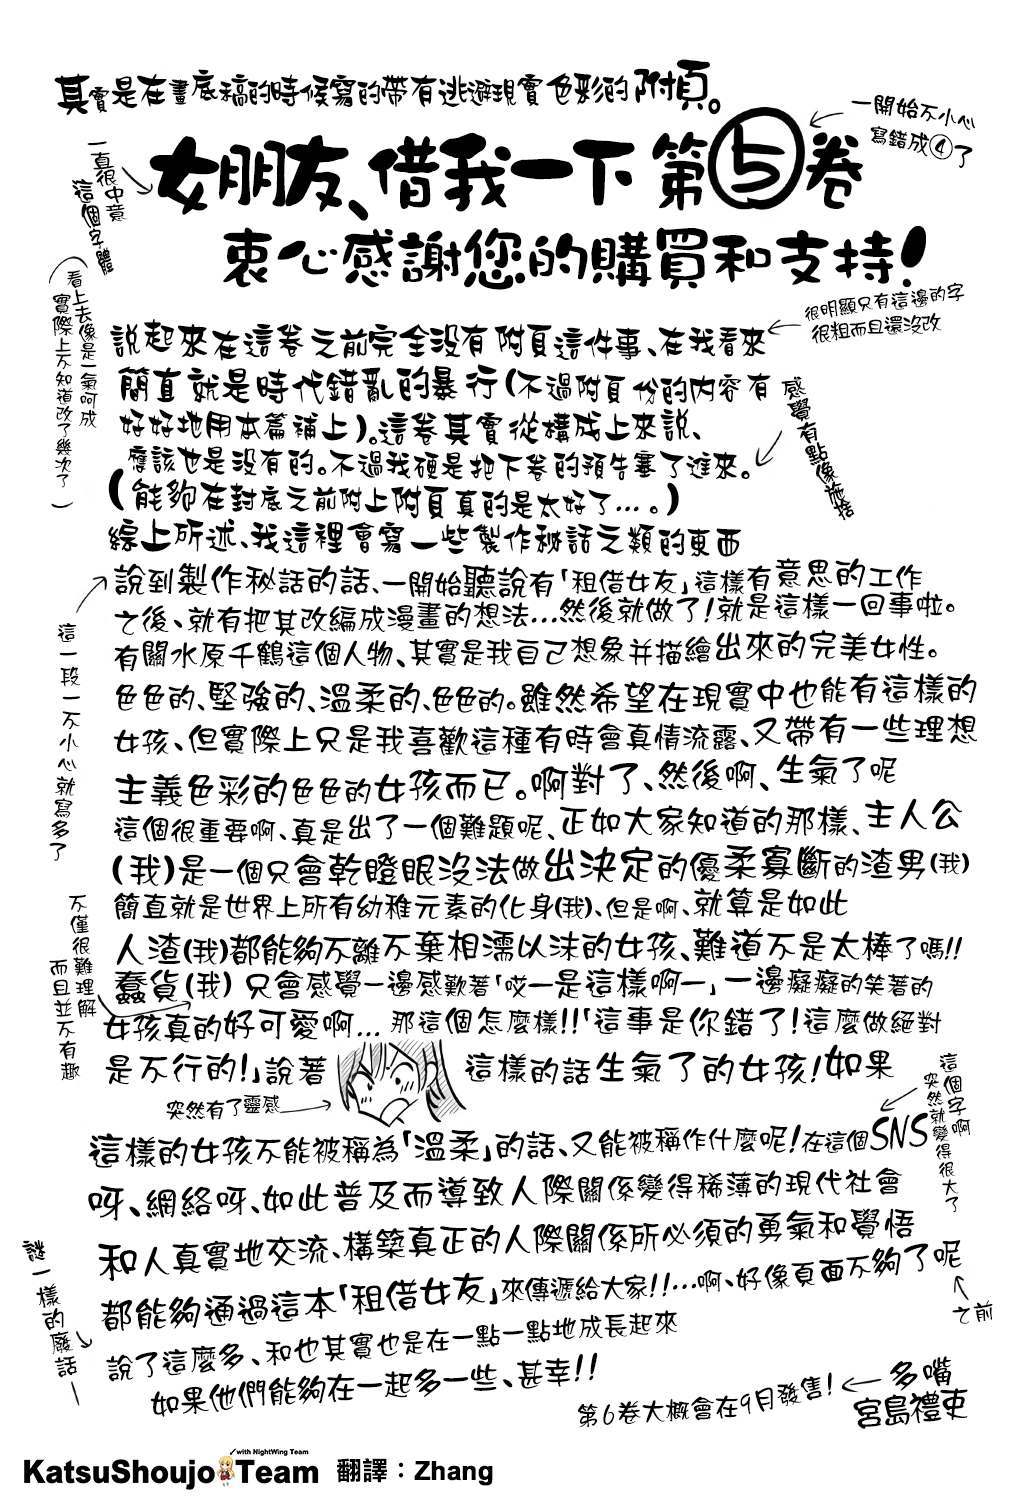 其實是在畫底稿的時候寫的帶有逃避現實色彩的附頁。
一開始不小心
寫錯成④了
女朋友、借我一下 第5卷
衷心感謝您的購買和支持！
一直很中意
這個字體
（看上去像是一氣呵成
實際上不知道改了幾次了）
很明顯只有這邊的字
很粗而且還沒改
說起來在這卷之前完全沒有附頁這件事、在我看來
簡直就是時代錯亂的暴行(不過附頁份的內容有
好好地用本篇補上)。這卷其實從構成上來說、
應該也是沒有的。不過我硬是把下卷的預告塞了進來。
(能夠在封底之前附上附頁真的是太好了…。)
感覺有點像施捨
綜上所述、我這裡會寫一些製作秘話之類的東西
說到製作秘話的話、一開始聽說有「租借女友」這樣有意思的工作
之後、就有把其改編成漫畫的想法…然後就做了！就是這樣一回事啦。
有關水原千鶴這個人物、其實是我自己想象并描繪出來的完美女性。
色色的、堅強的、溫柔的、色色的。雖然希望在現實中也能有這樣的
女孩、但實際上只是我喜歡這種有時會真情流露、又帶有一些理想
主義色彩的色色的女孩而已。啊對了、然後啊、生氣了呢
這個很重要啊、真是出了一個難題呢、正如大家知道的那樣、主人公
(我)是一個只會乾瞪眼沒法做出決定的優柔寡斷的渣男(我)
簡直就是世界上所有幼稚元素的化身(我)、但是啊、就算是如此
人渣(我)都能夠不離不棄相濡以沫的女孩、難道不是太棒了嗎!!
蠢貨(我) 只會感覺一邊感歎著「哎一是這樣啊一」一邊癡癡的笑著的
女孩真的好可愛啊… 那這個怎麼樣!!「這事是你錯了！這麼做絕對
是不行的！」說著 這樣的話生氣了的女孩！如果
這一段一不小心就寫多了
不僅很難理解
而且並不有趣
突然有了靈感
這個字啊
突然就變得很大了
這樣的女孩不能被稱為「溫柔」的話、又能被稱作什麼呢！在這個SNS
呀、網絡呀、如此普及而導致人際關係變得稀薄的現代社會
和人真實地交流、構築真正的人際關係所必須的勇氣和覺悟
都能夠通過這本「租借女友」來傳遞給大家!!…啊、好像頁面不夠了呢
之前
謎一樣的廢話一
說了這麼多、和也其實也是在一點一點地成長起來
如果他們能夠在一起多一些、甚幸!!
第6卷大概會在9月發售！
多嘴
宮島禮吏
with NightWing Team
KatsuShoujo Team 翻譯：Zhang